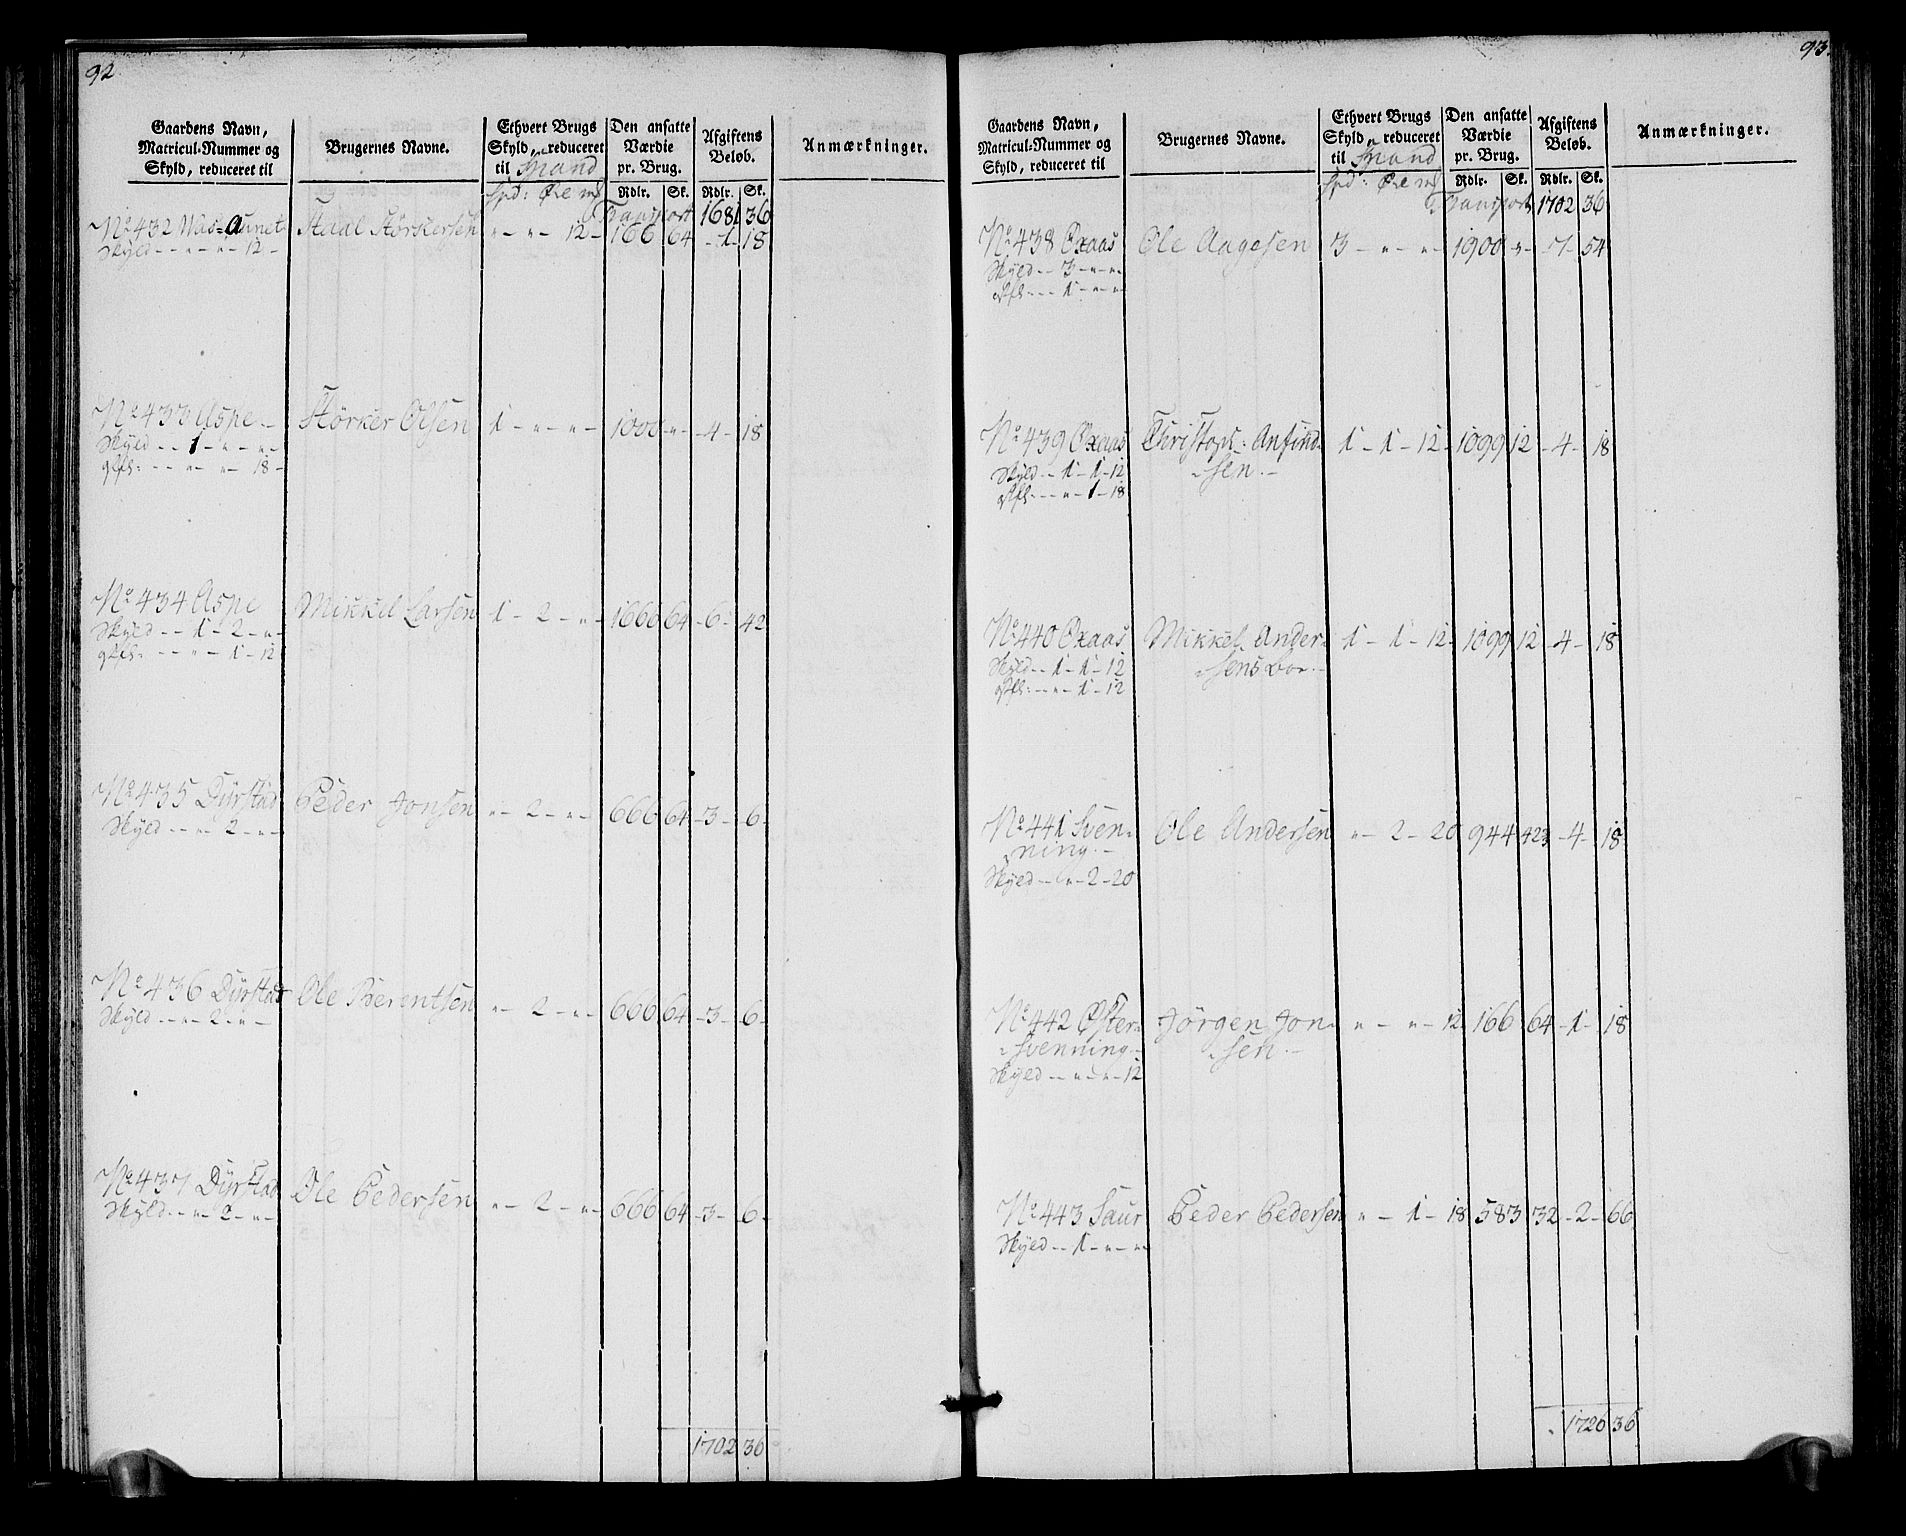 92
Gaardens Navn,
Matricul-Nummer og
Skyld, reduceret til
Brugernes Navne.
Ethvert Brugs
Skyld, reduceret
til Spand
Spd: Øre ml
Den ansatte
Værdie
pr. Brug.
Rdlr. Sk.
Afgiftens
Beløb.
Rdlr. Sk.
Anmærkninger.
Transport 1681 36
No 432 Aunet Staal Størkersen " - " - 12 - 166 64 - 1 - 18
Skyld - - " - " - 12 -
No 433 Aspe - Størker Olsen 1 - " - " - 1000 " - - 4 - 18
Skyld - - 1 - " - " -
Afk: - - " - " - 18 -
No 434 Aspe Mikkel Larsen 1 - 2 - " - 1666 64 - 6 - 42
Skyld - - 1 - 2 - " -
Afk: - - " - 1 - 12
No 435 Dyrstad Peder Jonsen " - 2 - " - 666 64 - 3 - 6 -
Skyld - - " - 2 - " -
No 436 Dyrstad Ole Berentsen " - 2 - " - 666 64 - 3 - 6 -
Skyld - - " - 2 - " -
No 437 Dyrstad Ole Pedersen " - 2 - " - 666 64 - 3 - 6 -
Skyld - - " - 2 - " -
1702 36
93.
Gaardens Navn,
Matricul-Nummer og
Skyld, reduceret til
Brugernes Navne.
Ethvert Brugs
Skyld, reduceret
til Spand
Spd: Øre ml
Den ansatte
Værdie
pr. Brug.
Rdlr. Sk.
Afgiftens
Beløb.
Rdlr. Sk.
Anmærkninger.
Transport 1702 36
No 438 Oxaas Ole Aagesen 3 - " - " - 1900 " - - 7 - 54
Skyld - - 3 - " - "
Afk - - - 1 - " - "
No 439 Oxaas Christoph: Anfind-
Skyld - - 1 - 1 - 12 sen. - 1 - 1 - 12 - 1099 12 - 4 - 18
Afk - - - " - 1 - 18
No 440 Oxaas Mikkel Ander- 1 - 1 - 12 - 1099 12 - 4 - 18
Skyld - - 1 - 1 - 12 sens
Afk: - - " - 1 - 12
No 441 Sven- Ole Andersen " - 2 - 20 944 423 - 4 - 18
ning. -
Skyld - - " - 2 - 20
No 442 Øster- Jörgen Jon- " - " - 12 166 64 - 1 - 18
Svenning - sen. -
Skyld - - " - " - 12
No 443 Saur Peder Pedersen " - 1 - 18 583 32 - 2 - 66
Skyld - - 1 - " - "
1726 36